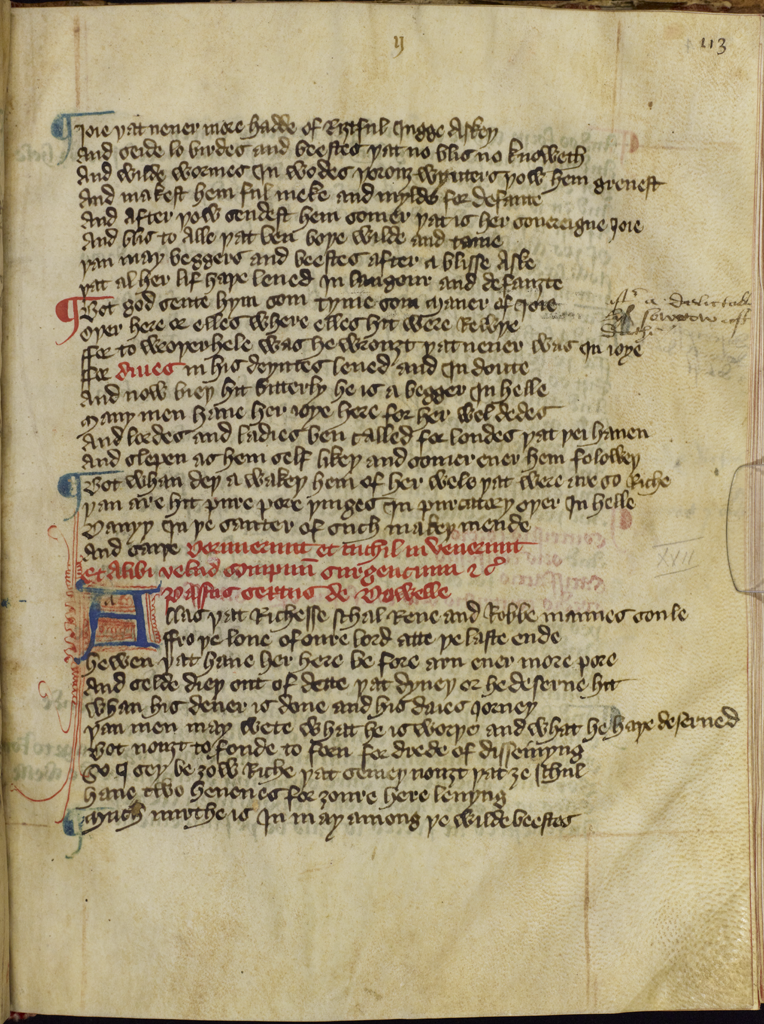 ij
113
Ioie þat neuer more hadde of Riztful Iugge Askeþ
And seide lo birdes and beestes þat no blis no knoweth
And wilde wormes In wodes þorouz wynters þow hem greuest
And makest hem ful meke and mylde for defaute
And after þow sendest hem somer þat is her souereigne Ioie
And blis to Alle þat ben boþe wilde and tame
þan may beggers and beestes after a blisse Aske
þat al her lif haþe leued In langour and defaute
Bot god sente hym som tyme som maner of Ioie
oþer here or elles where elles hit were Rewþe
ffor to wroþerhele was he wrouzt þat neuer was In ioye
ffor diues in his deyntes leued and In doute
And now bieþ hit bitterly he is a begger In helle
Many men haue her ioye here for her wel dedes
And lordes and ladies ben called for londes þat þei hauen
And slepen as hem self likeþ and somer euer hem foloweþ
Bot whan deþ a wakeþ hem of her wele þat were are so Riche
þan are hit pure pore þinges In purcatory oþer In helle
Dauyþ In þe sauter of such makeþ mende
And saiþe Dormierunt et nichil inuenerunt
et alibi velud sompnum surgencium &c
Passus sextus de Dowelle
Allas þat Richesse schal Reue and Robbe mannes soule
ffro þe loue of oure lord atte þe laste ende
hewen þat haue her here be fore arn euer more pore
And selde dieþ out of dette þat dyneþ or he deserue hit
whan his deuer is done and his daies Iorney
þan men may wete what he is worþe and what he haþe deserued
Bot nouzt to fonde to forn for drede of disseruyng
So I sey be zow Riche þat semeþ nouzt þat ze schul
haue two heuenes for zoure here leuyng
Much mirthe is In may among þe wilde beestes